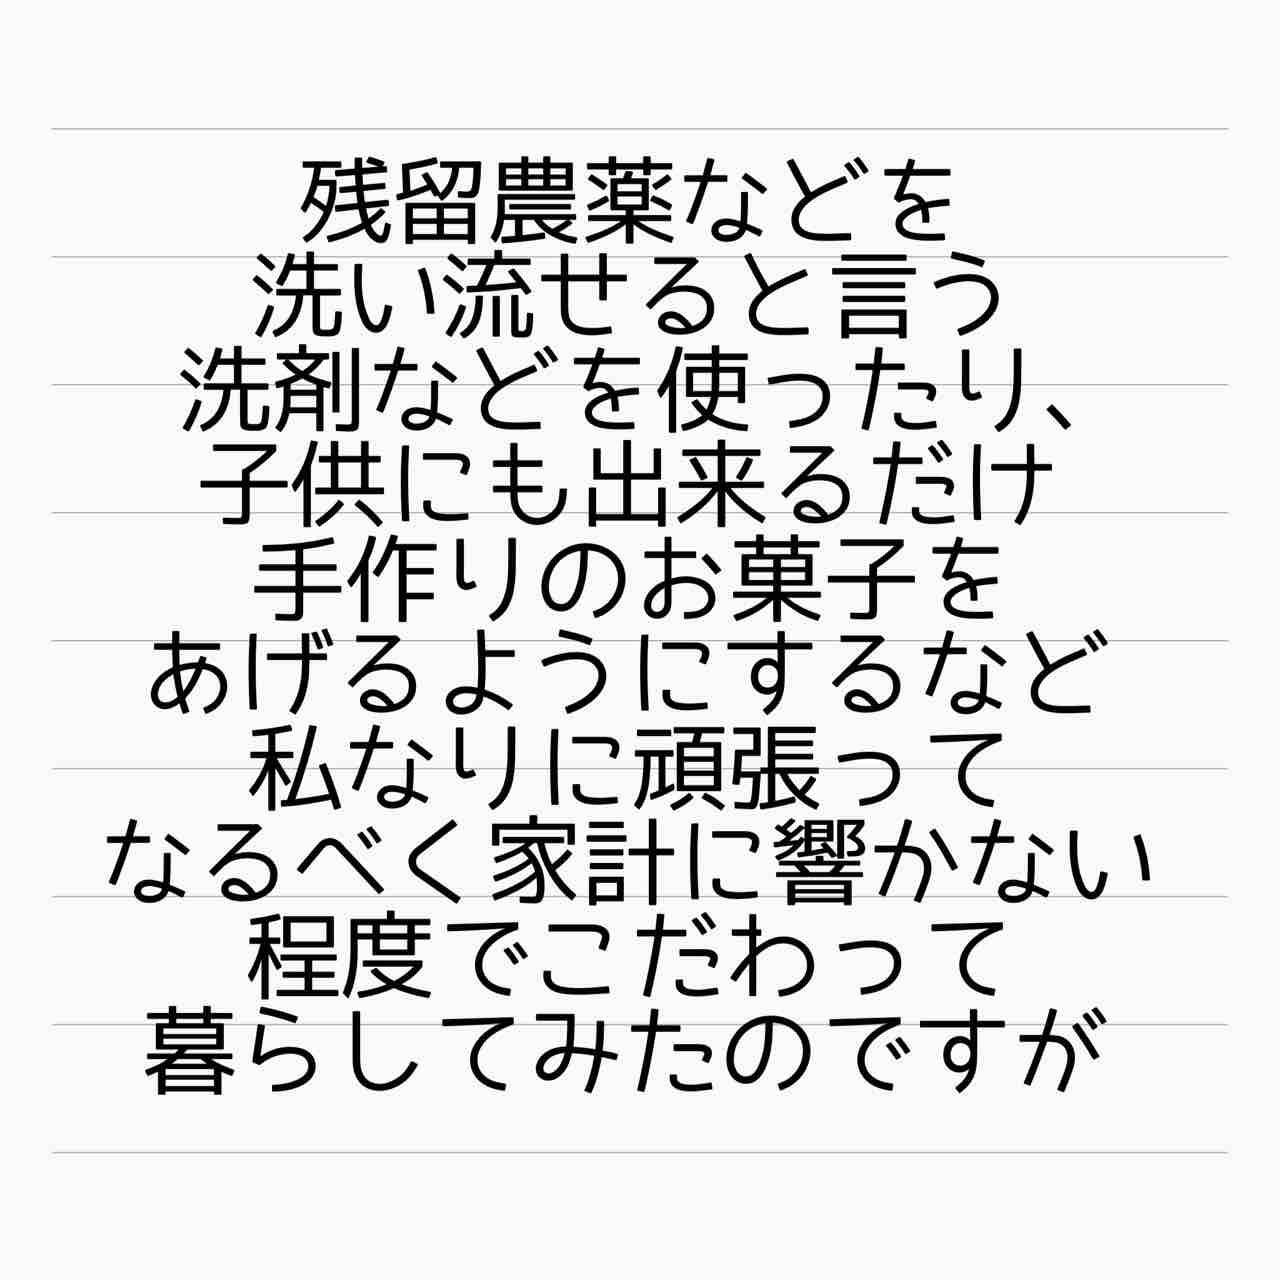 残留農薬などを
洗い流せると言う
洗剤などを使ったり、
子供にも出来るだけ
手作りのお菓子を
あげるようにするなど
私なりに頑張って
なるべく家計に響かない
程度でこだわって
暮らしてみたのですが